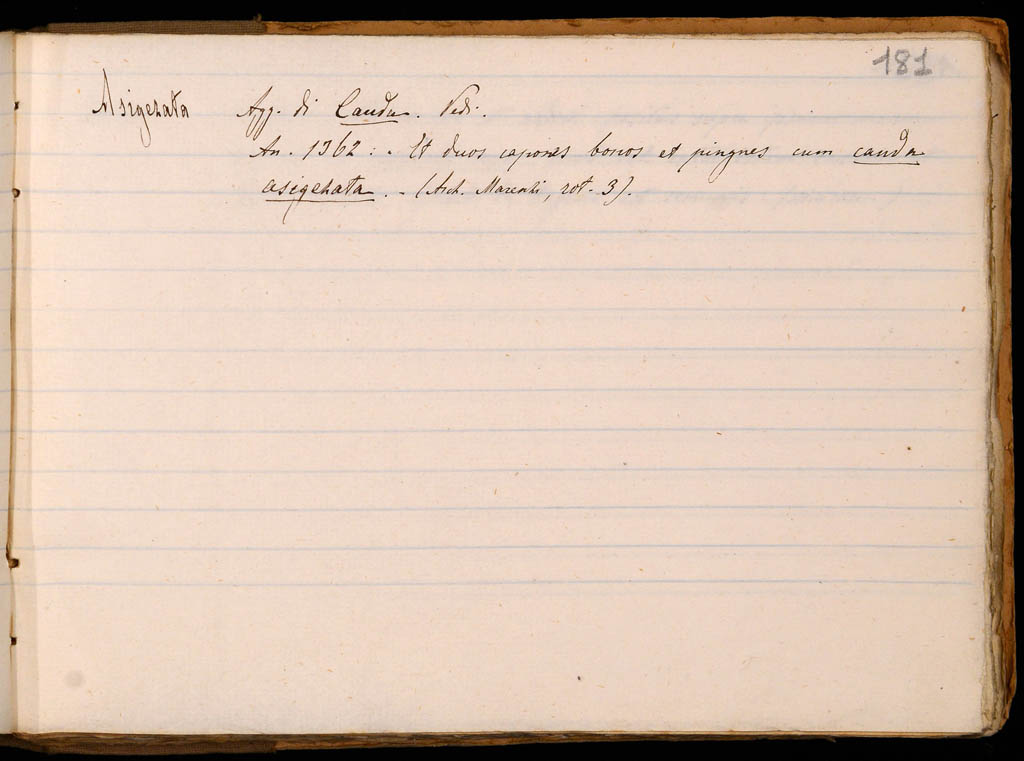 181
Asigezata Agg. di Cauda. Vedi.
An. 1362: - Et duos capones bonos et pingues cum cauda
asigezata. - (Arch. Marenti, rot. 3).